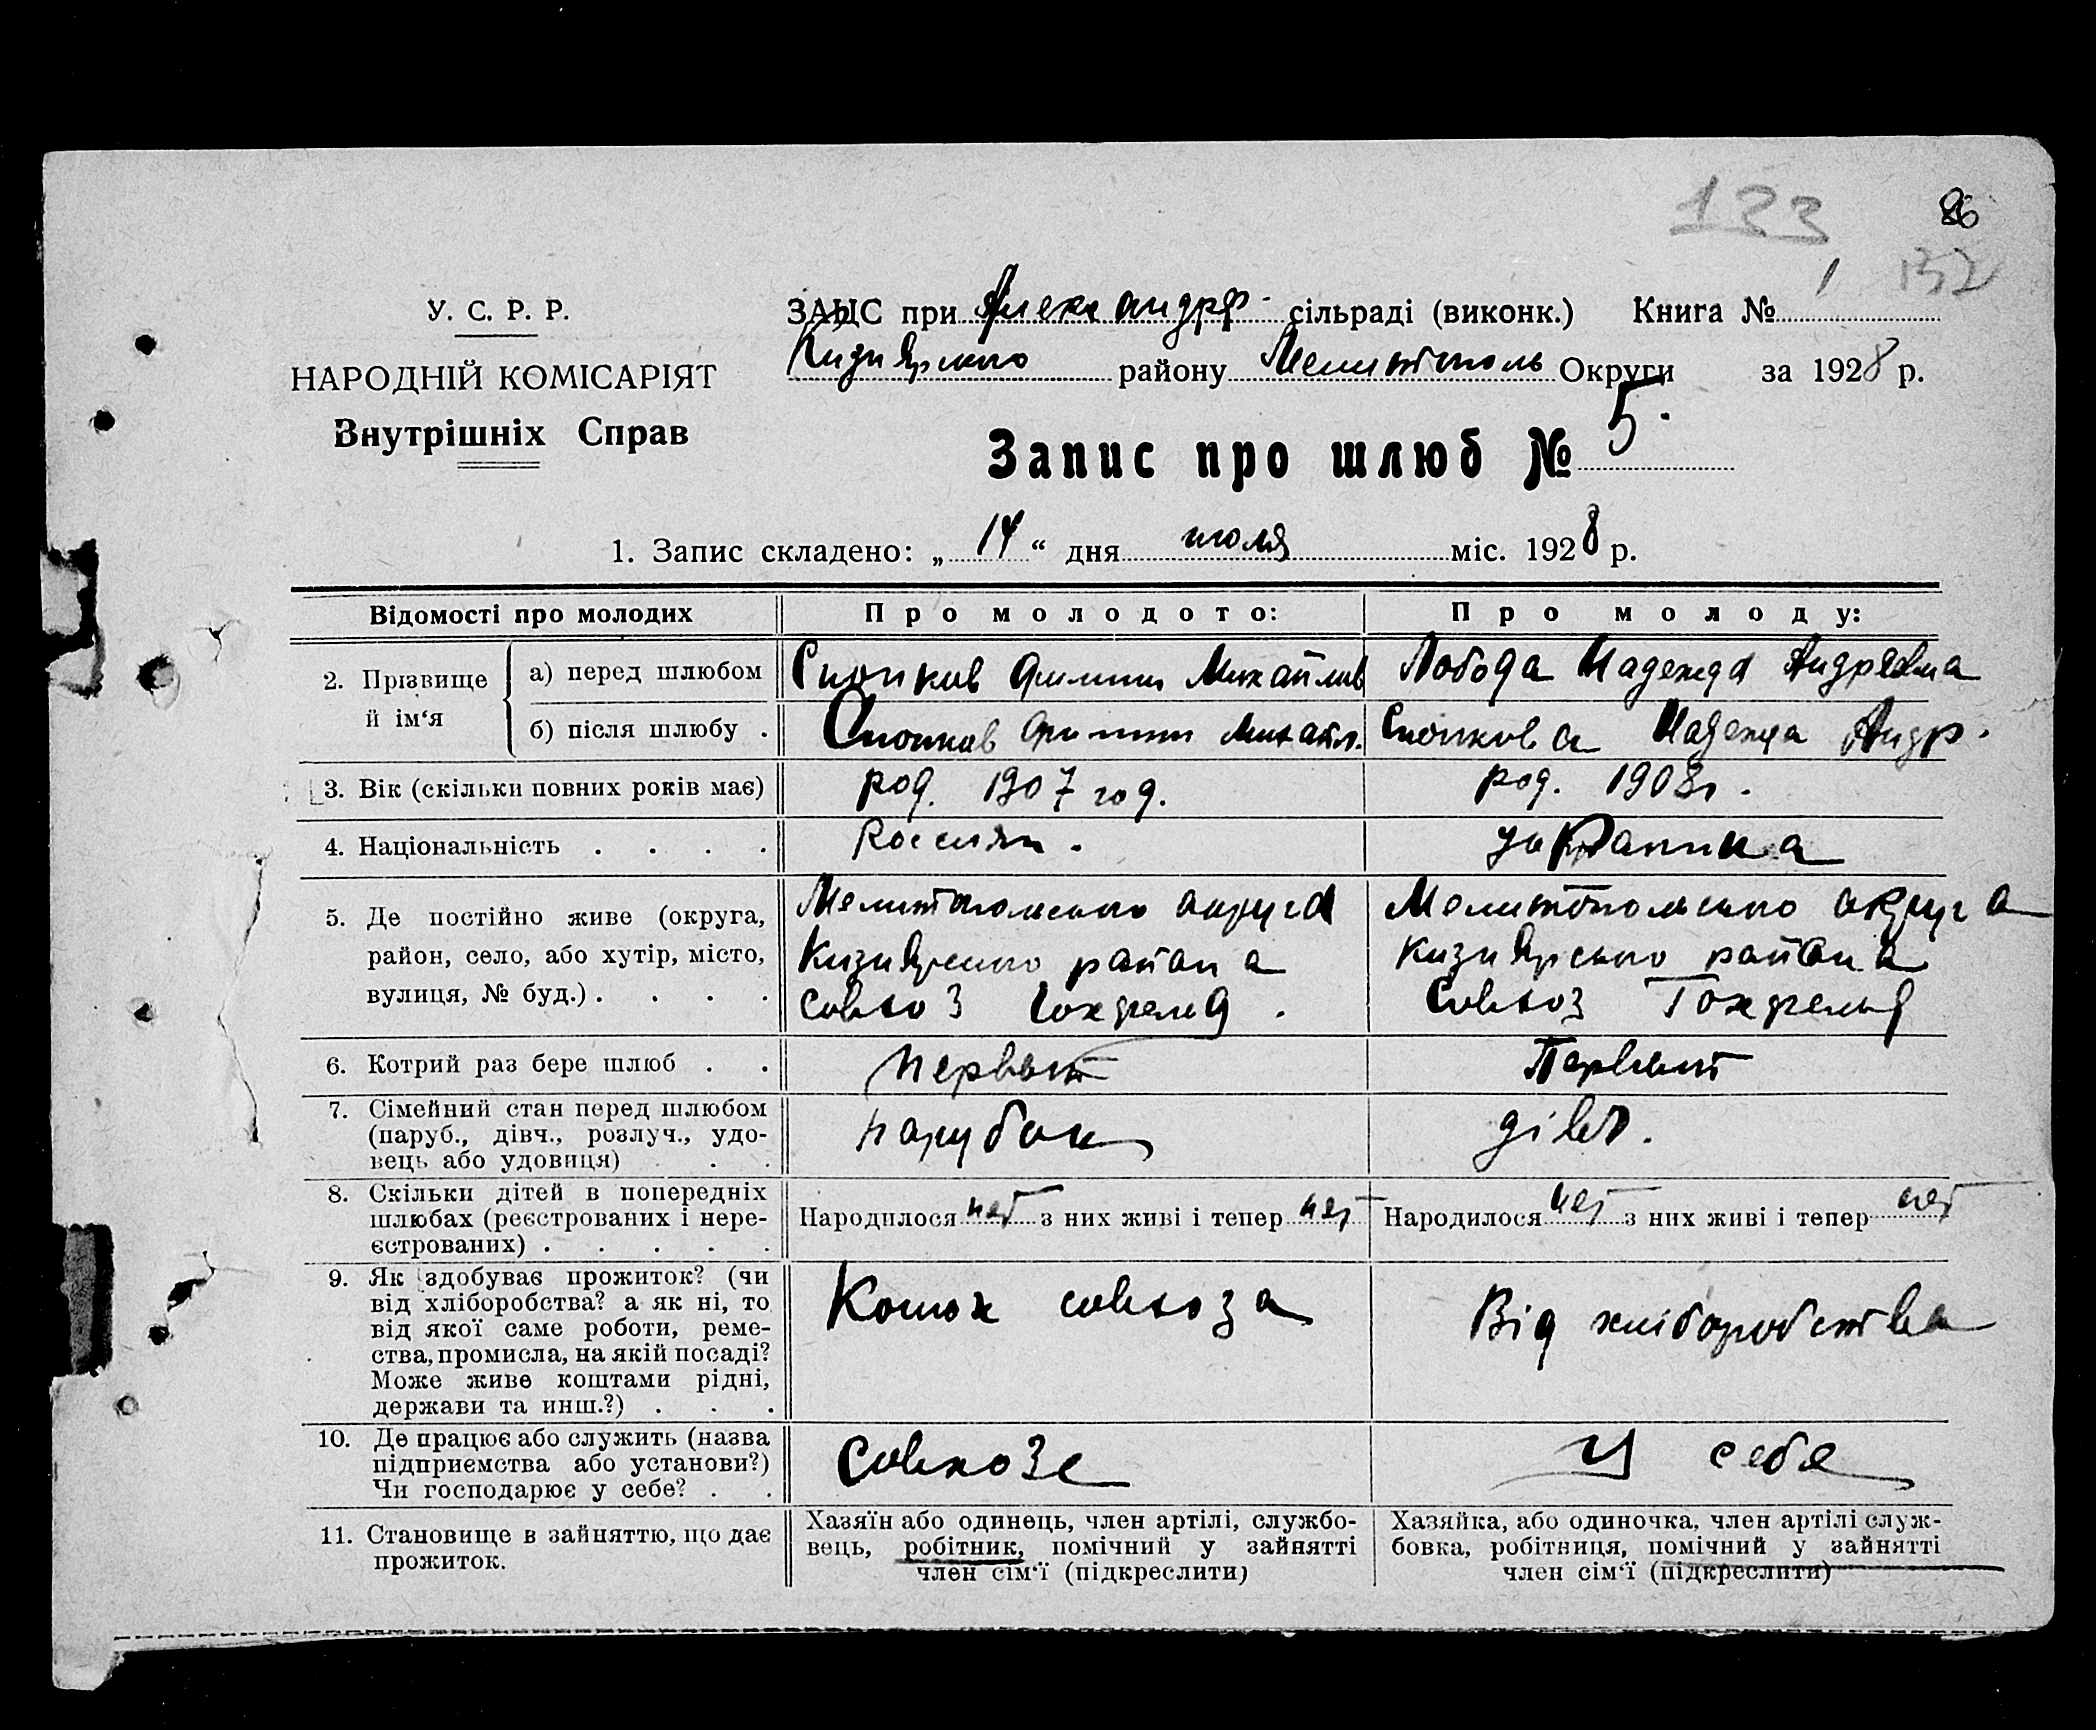 133
86
132
У. С. Р. Р.
НАРОДНІЙ КОМІСАРІЯТ
Внутрішніх Справ
ЗАЦС при Александр сільраді (виконк.) Книга № 1
Кизиярского району Мелитополь Округи за 1928 р.
Запис про шлюб № 5.
1. Запис складено: „ 14 “ дня июля міс. 1928 р.
Відомості про молодих Про молодого: Про молоду:
2. Прізвище й ім‘я
а) перед шлюбом Михайлов Лобода Надежда
б) після шлюбу . Михайл. Надежда Андр.
3. Вік (скільки повних років має) род. 1907 год. род. 1908 г.
4. Національність . . . . Россиян. украинка
5. Де постійно живе (округа, район, село, або хутір, місто, вулиця, № буд.) . . . .
Мелитопольского округа
Кизиярского района
совхоз Гохфельд.
Мелитопольского округа
Кизиярского района
Совхоз Гохфельд
6. Котрий раз бере шлюб . . Первый Первый
7. Сімейний стан перед шлюбом
(паруб., дівч., розлуч., удо-
вець або удовиця) . . парубок дівч.
8. Скільки дітей в попередніх
шлюбах (реєстрованих і нере-
єстрованих) . . . . .
Народилося нет з них живі і тепер нет
Народилося нет з них живі і тепер нет
9. Як здобуває прожиток? (чи
від хліборобства? а як ні, то
від якої саме роботи, реме-
ства, промисла, на якій посаді?
Може живе коштами рідні,
держави та инш.?) . . .
Конюх совхоза
Від хліборобства
10. Де працює або служить (назва
підприємства або установи?)
Чи господарює у себе? . .
Совхозе
У себе
11. Становище в зайняттю, що дає
прожиток.
Хазяїн або одинець, член артілі, службо-
вець, робітник, помічний у зайнятті
член сім‘ї (підкреслити)
Хазяйка, або одиночка, член артілі служ-
бовка, робітниця, помічний у зайнятті
член сім‘ї (підкреслити)